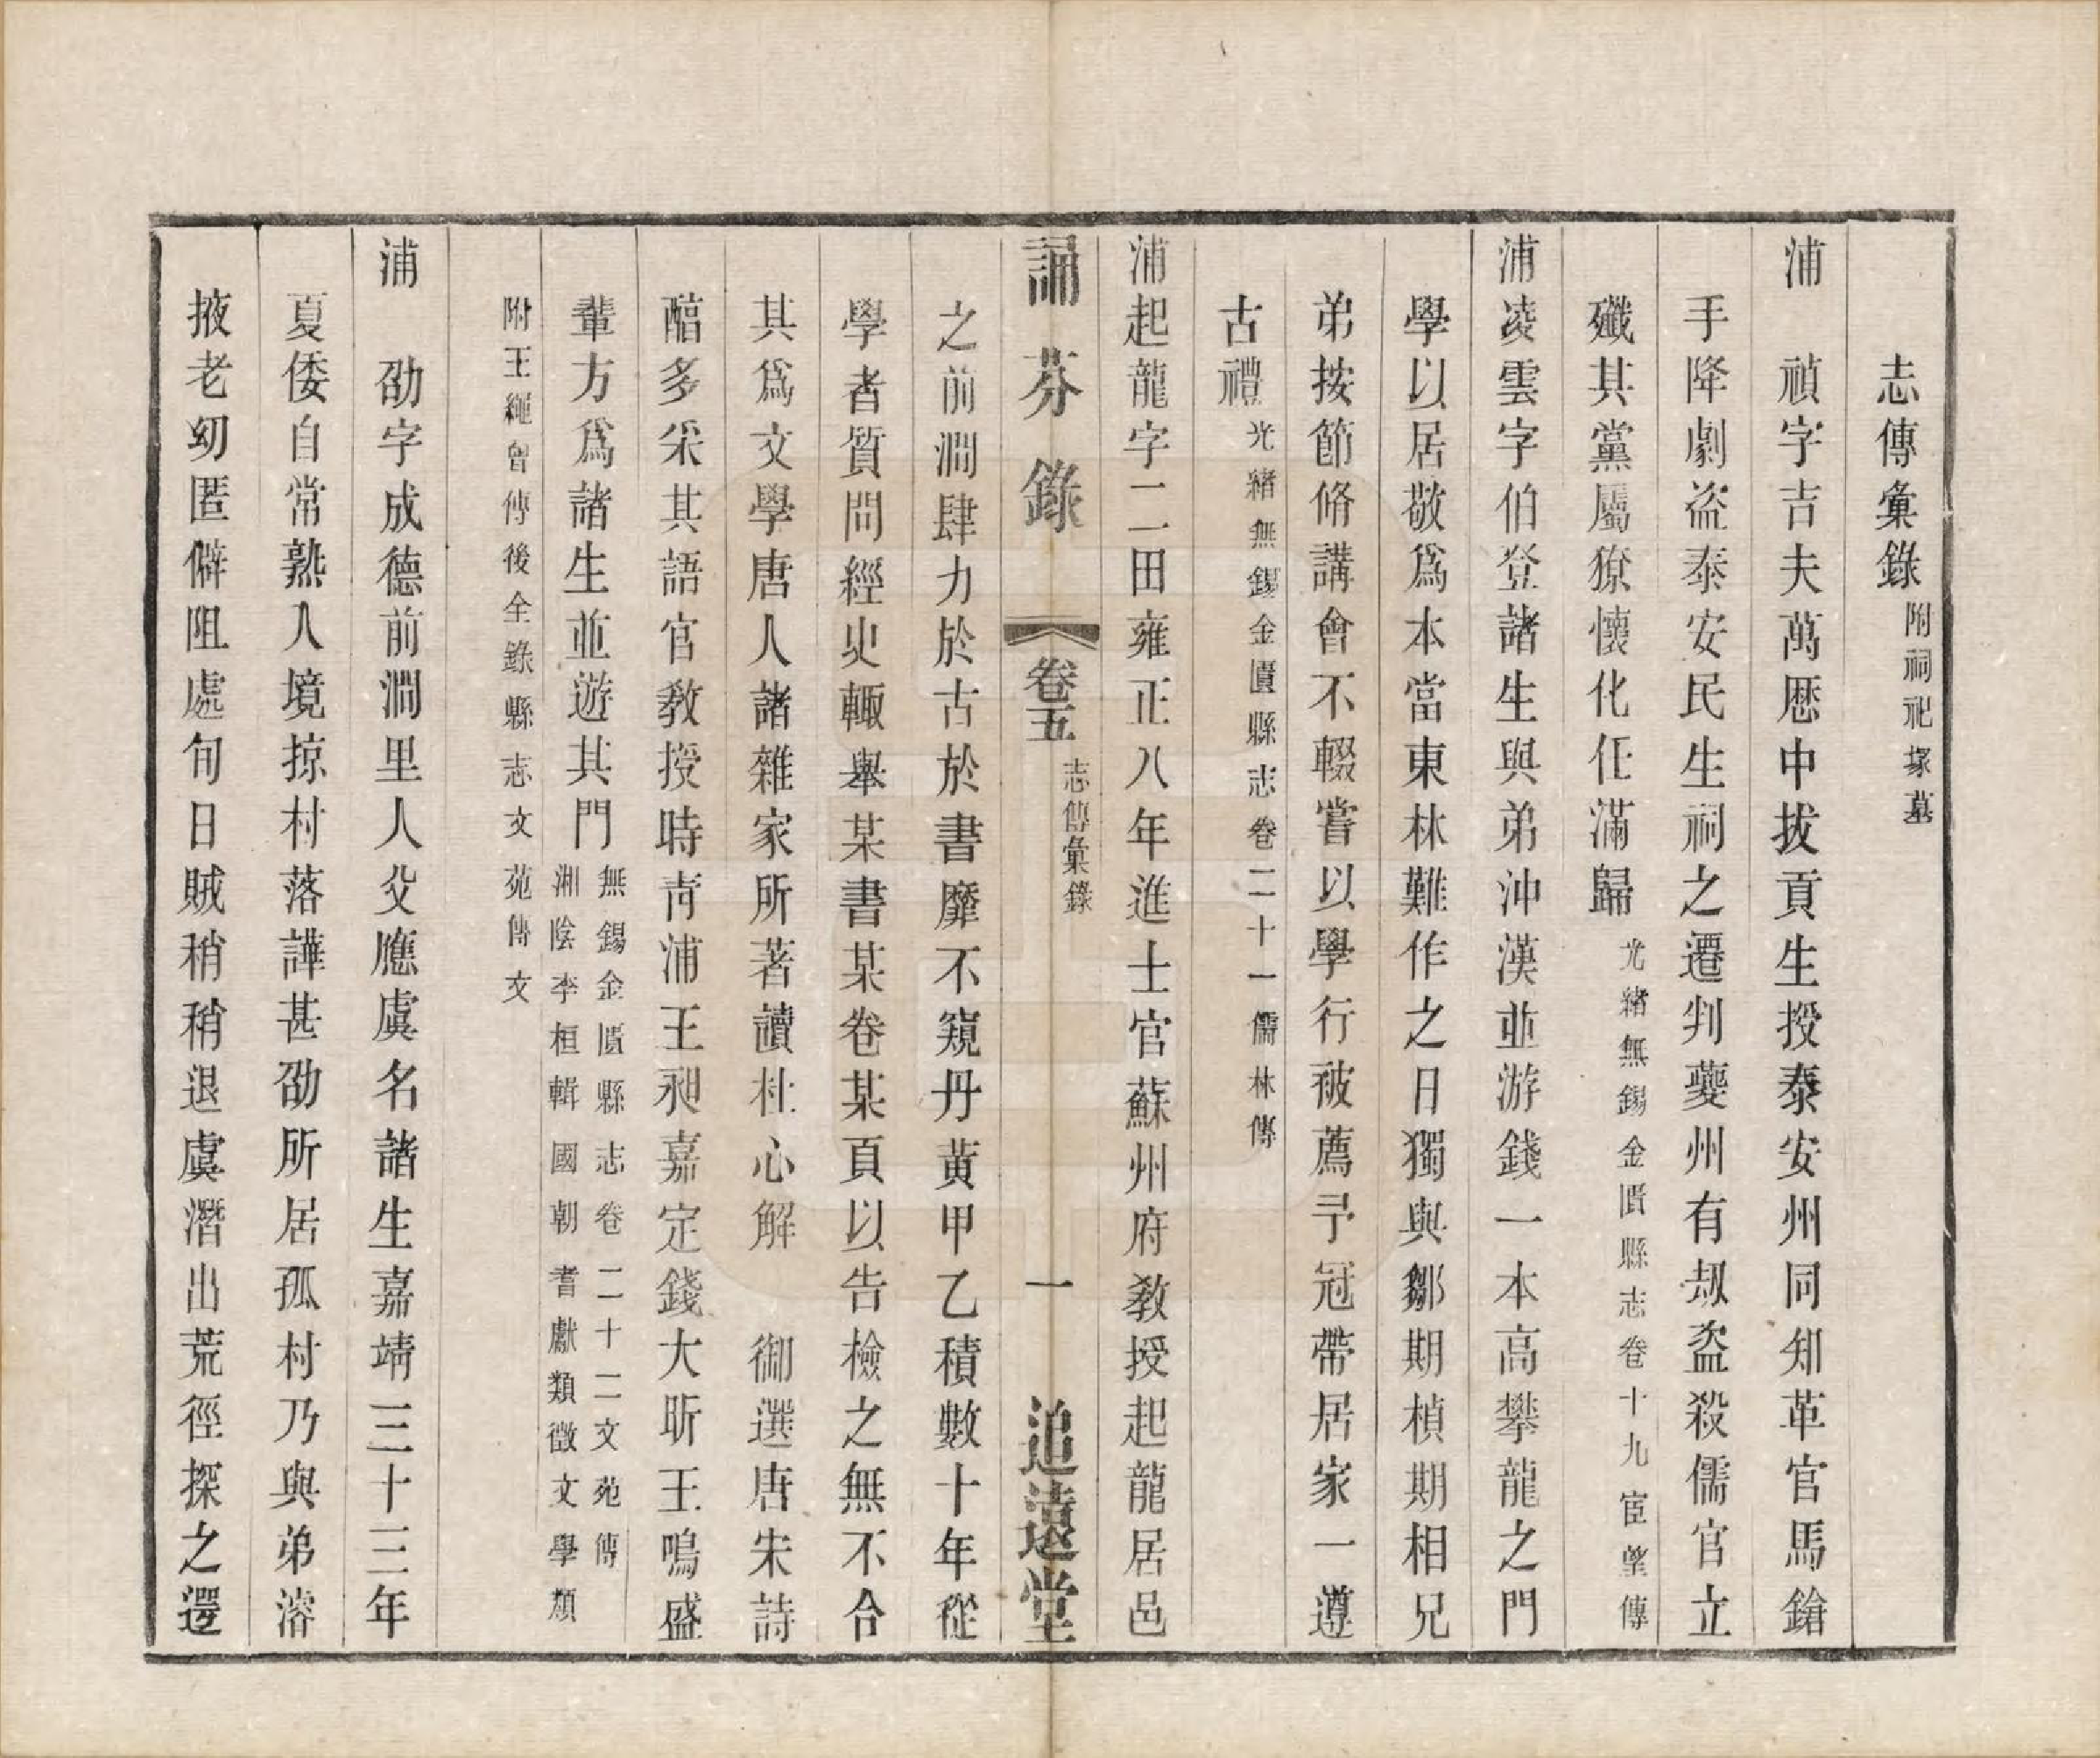 志傳彙錄附祠祀塚墓
浦　禎字吉夫萬厯中拔貢生授泰安州同知革官馬鎗
手降劇盜泰安民生祠之遷判夔州有刼盜殺儒官立
殲其黨屬獠懷化任滿歸光緒無錫金匱縣志卷十九宦望傳
浦凌雲字伯登諸生與弟沖漢並游錢一本高攀龍之門
學以居敬爲本當東林難作之日獨與鄒期楨期相兄
弟按節脩講會不輟嘗以學行被薦予冠帶居家一遵
古禮光緒無錫金匱縣志卷二十一儒林傳
浦起龍字二田雍正八年進士官蘇州府敎授起龍居邑
誦芬錄　卷五　志傳彙錄　一　追遠堂
之前澗肆力於古於書靡不窺丹黃甲乙積數十年從
學者質問經史輙舉某書某卷某頁以告檢之無不合
其爲文學唐人諸雜家所著讀杜心解　御選唐宋詩
醕多采其語官敎授時靑浦王昶嘉定錢大昕王鳴盛
輩方爲諸生並遊其門無錫金匱縣志卷二十二文苑傳
湘陰李桓輯國朝耆獻類徵文學類
附王繩曾傳後全錄縣志文苑傳文
浦　劭字成德前澗里人父應虞名諸生嘉靖三十三年
夏倭自常熟入境掠村落譁甚劭所居孤村乃與弟濬
掖老幼匿僻阻處旬日賊稍稍退虞潛出荒徑探之還